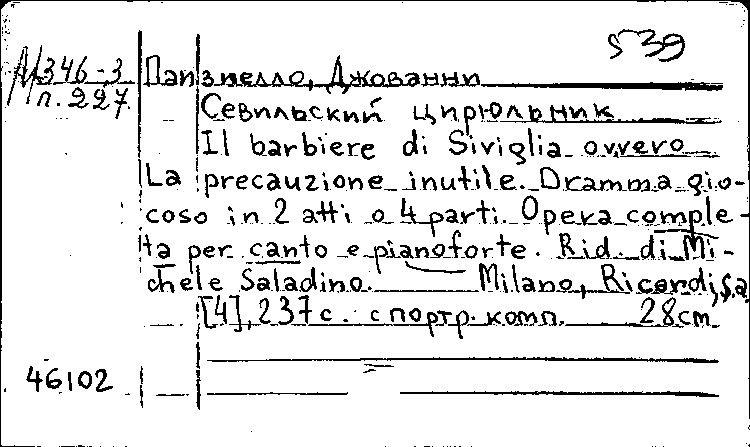 539
М346-3 Паизиелло, Джованни
п.227.
Севильский цирюльник
Il barbiere di Siviglia ovvero
La precauzione inutile. Dramma gio-
coso in 2 atti o 4 parti. Opera comple-
ta per canto e pianoforte. Rid. di Mi-
chele Saladino. Milano, Ricordi, s.a.
[4], 237 с. с портр. комп. 28cm
46102